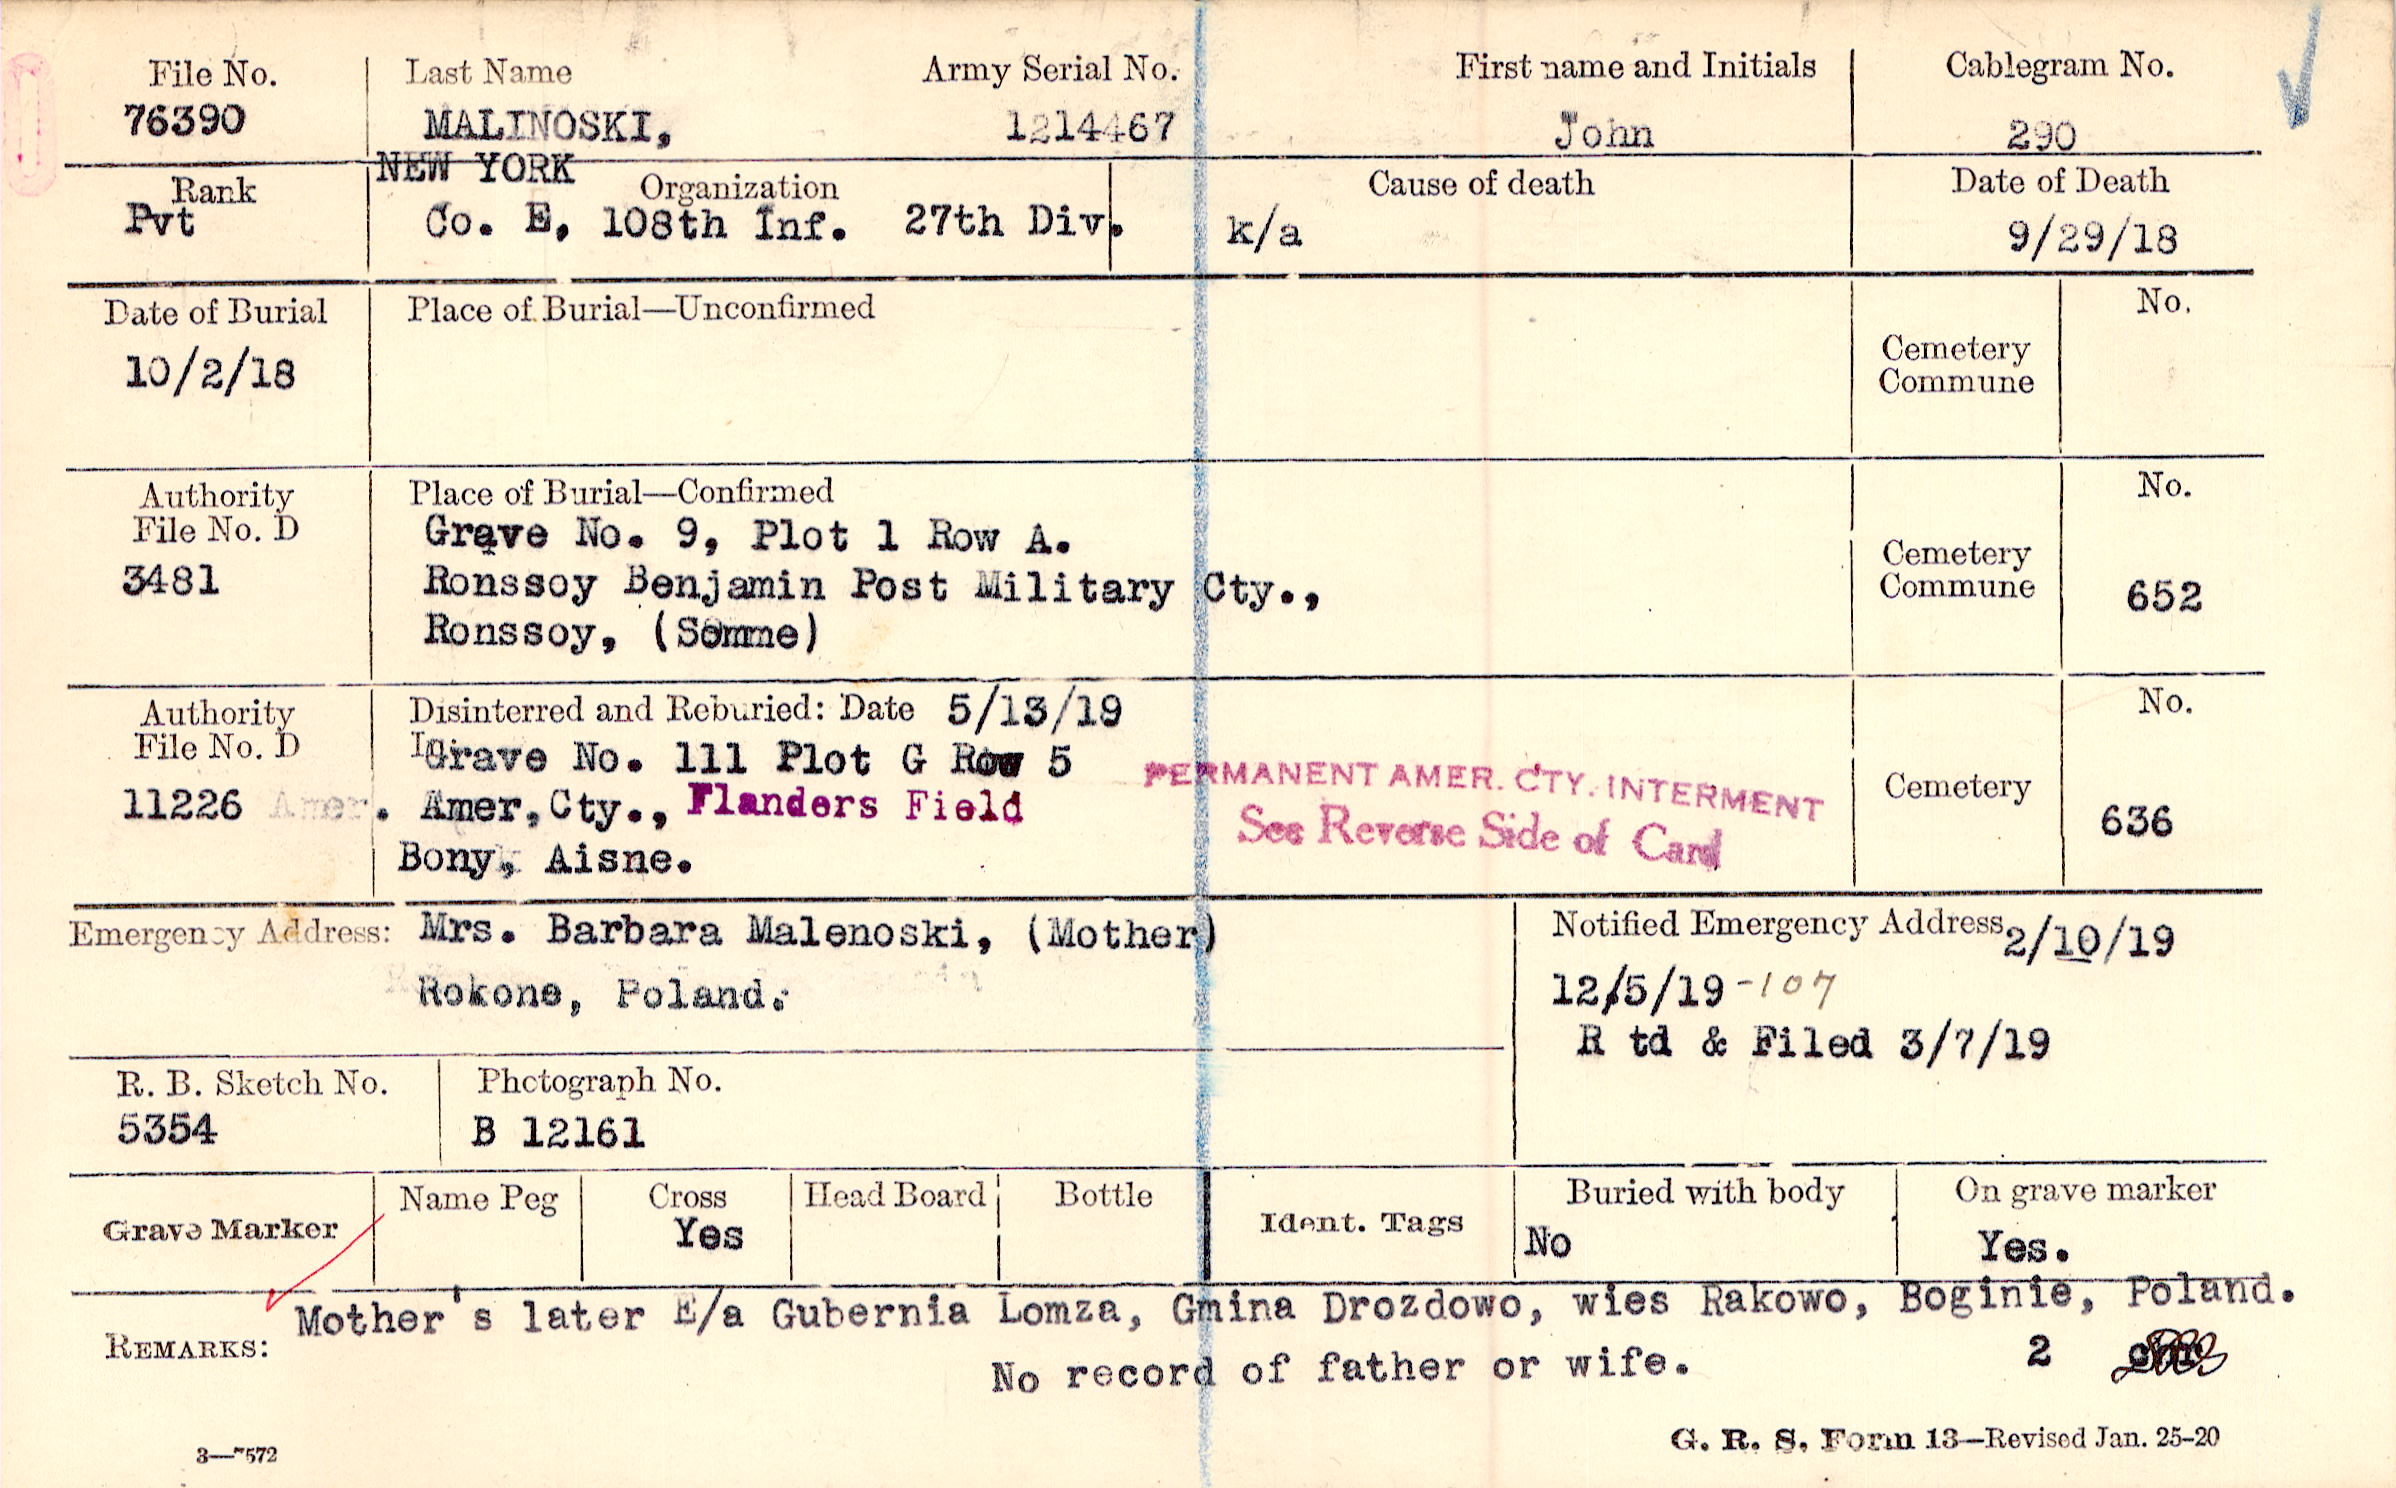 File No. Last Name Army Serial No. First name and Initials Cablegram No.
76390 MALINOSKI, 1214467 John 290
NEW YORK
Rank Organization Cause of death Date of Death
Pvt Co. E, 108th Inf. 27th Div. k/a 9/29/18
Date of Burial Place of Burial—Unconfirmed No.
10/2/18 Cemetery
Commune
Authority Place of Burial—Confirmed No.
File No. D Grave No. 9, Plot 1 Row A.
3481 Ronssoy Benjamin Post Military Cty., Cemetery
Commune 652
Ronssoy, (Somme)
Authority Disinterred and Reburied: Date 5/13/19 No.
File No. D In Grave No. 111 Plot G Row 5
PERMANENT AMER. CTY. INTERMENT
11226 Amer. Amer, Cty., Flanders Field Cemetery 636
See Reverse Side of Card
Bony, Aisne.
Emergency Address: Mrs. Barbara Malenoski, (Mother) Notified Emergency Address 2/10/19
Rokone, Poland. 12/5/19 -107
R td & Filed 3/7/19
R. B. Sketch No. Photograph No.
5354 B 12161
Grave Marker Name Peg Cross Head Board Bottle Ident. Tags Buried with body On grave marker
Yes No Yes.
Mother's later E/a Gubernia Lomza, Gmina Drozdowo, wies Rakowo, Boginie, Poland.
REMARKS: No record of father or wife. 2
3—7572 G. R. S. Form 13—Revised Jan. 25-20